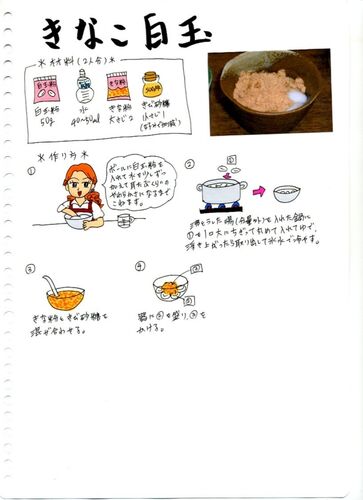 きなこ白玉
＊材料(2人分)＊
白玉粉
水
きな粉
SUGAR
白玉粉
50g
水
40〜50ml
きな粉
大さじ2
きび砂糖
小さじ1
＊作り方＊
①
ボールに白玉粉を
入れて水を少しずつ
加えて耳たぶくらいの
やわらかさになるまで
こねます。
②
①
沸とうした湯(分量外)を入れた鍋に
①を1口大にちぎって丸めて入れてゆで、
浮き上がったら取り出して氷水で冷やす。
③
きな粉ときび砂糖を
混ぜ合わせる。
④
③
②
器に②を盛り、③を
かける。